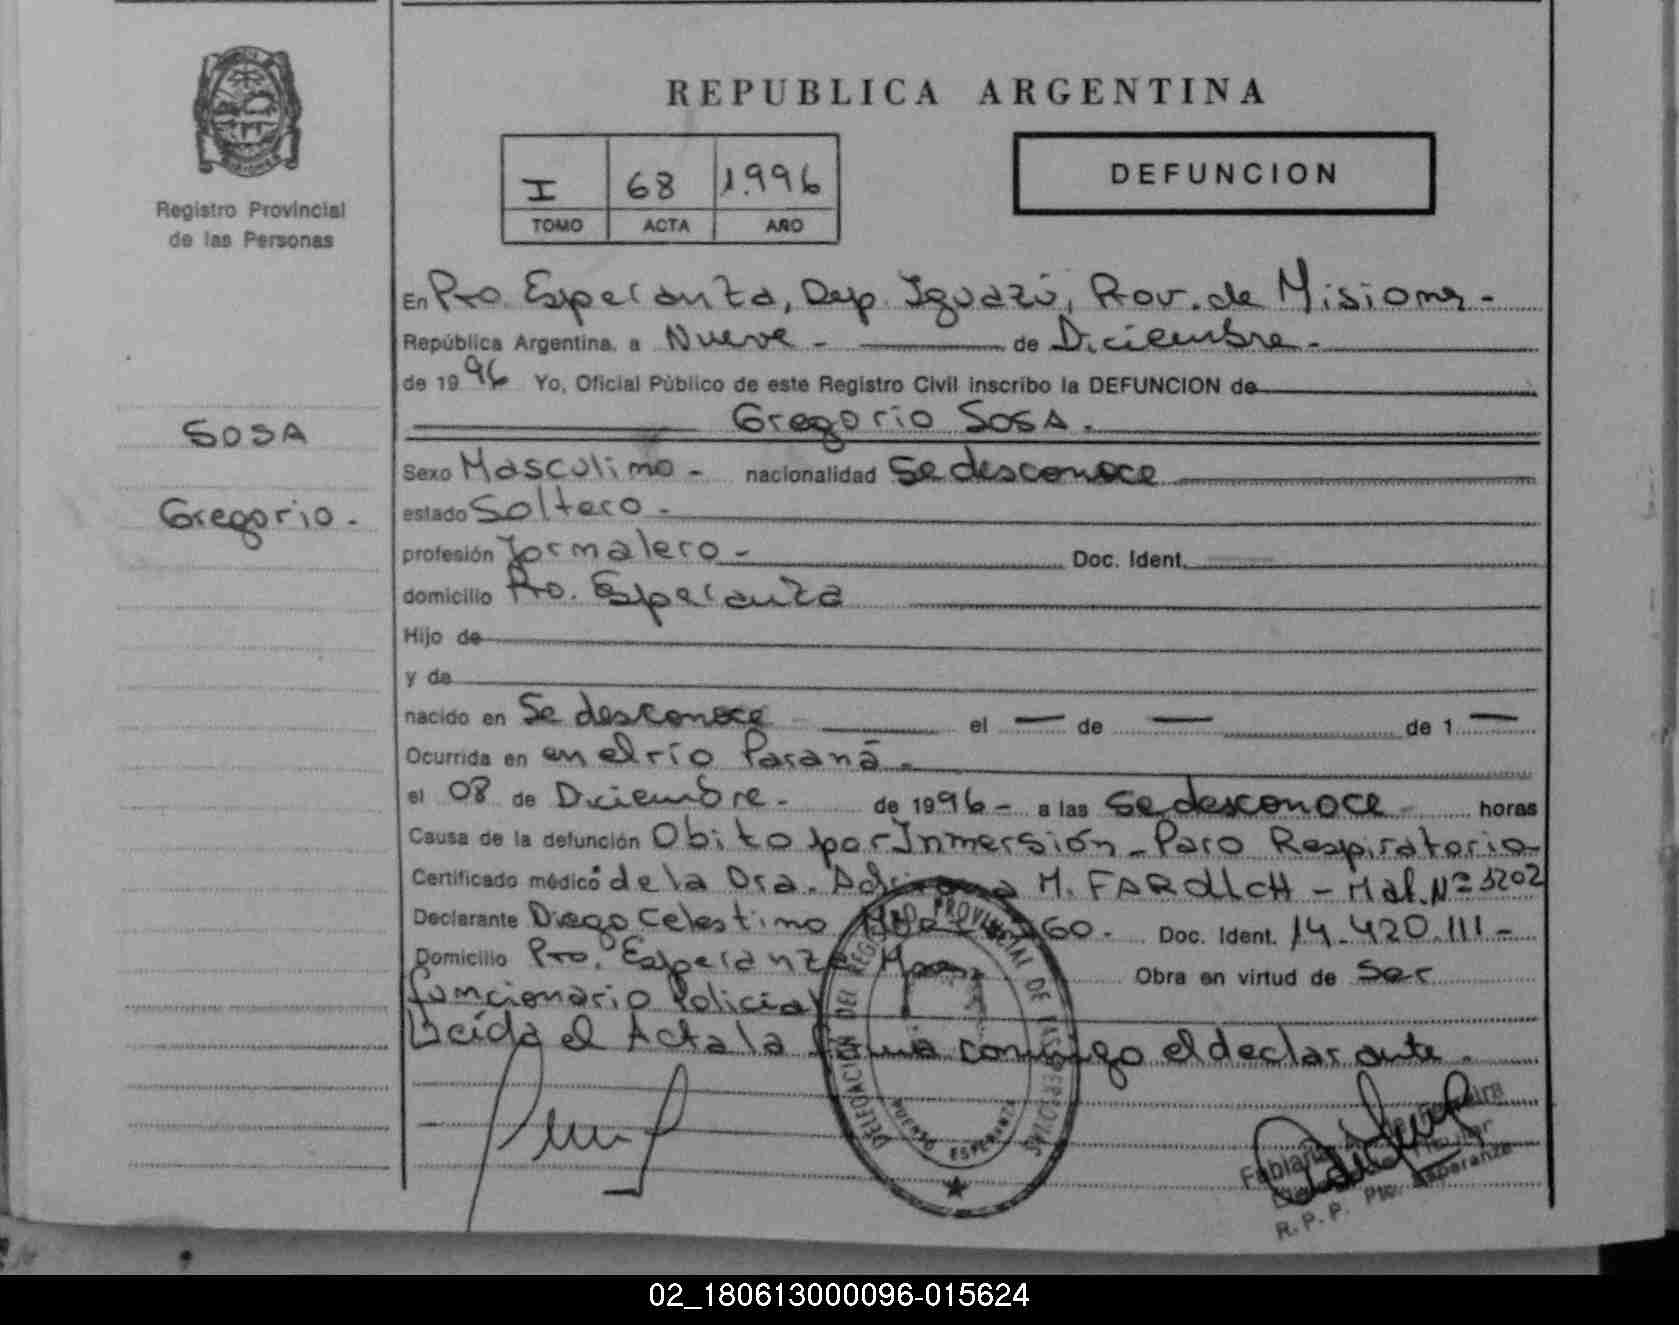 REPUBLICA ARGENTINA
Registro Provincial
de las Personas
I 68 1.996
TOMO ACTA AÑO
DEFUNCION
SOSA
Gregorio.-
En Pto. Esperanza, Dep. Iguazú, Prov. de Misiones-
República Argentina, a Nueve - de Diciembre.-
de 1996 Yo, Oficial Público de este Registro Civil inscribo la DEFUNCION de
Gregorio SOSA.
Sexo Masculino - nacionalidad Se desconoce
estado Soltero.-
profesión Jornalero - Doc. Ident.
domicilio Pto. Esperanza
Hijo de
y de
nacido en Se desconoce el — de — de 1 —
Ocurrida en en el río Paraná.-
el 08 de Diciembre.- de 1996- a las Se desconoce - horas
Causa de la defunción Obito por Inmersión - Paro Respiratorio-
Certificado médico de la Dra. M. - Mat. Nº 3202
Declarante Diego Celestino Doc. Ident. 14.420.111-
Domicilio Pto. Esperanza Obra en virtud de Ser
funcionario Policial
Leída el Acta la firma conmigo el declarante.
DELEGACION DEL REGISTRO PROVINCIAL DE LAS PERSONAS
ESPERANZA
R. P. P. Pto. Esperanza
02_180613000096-015624